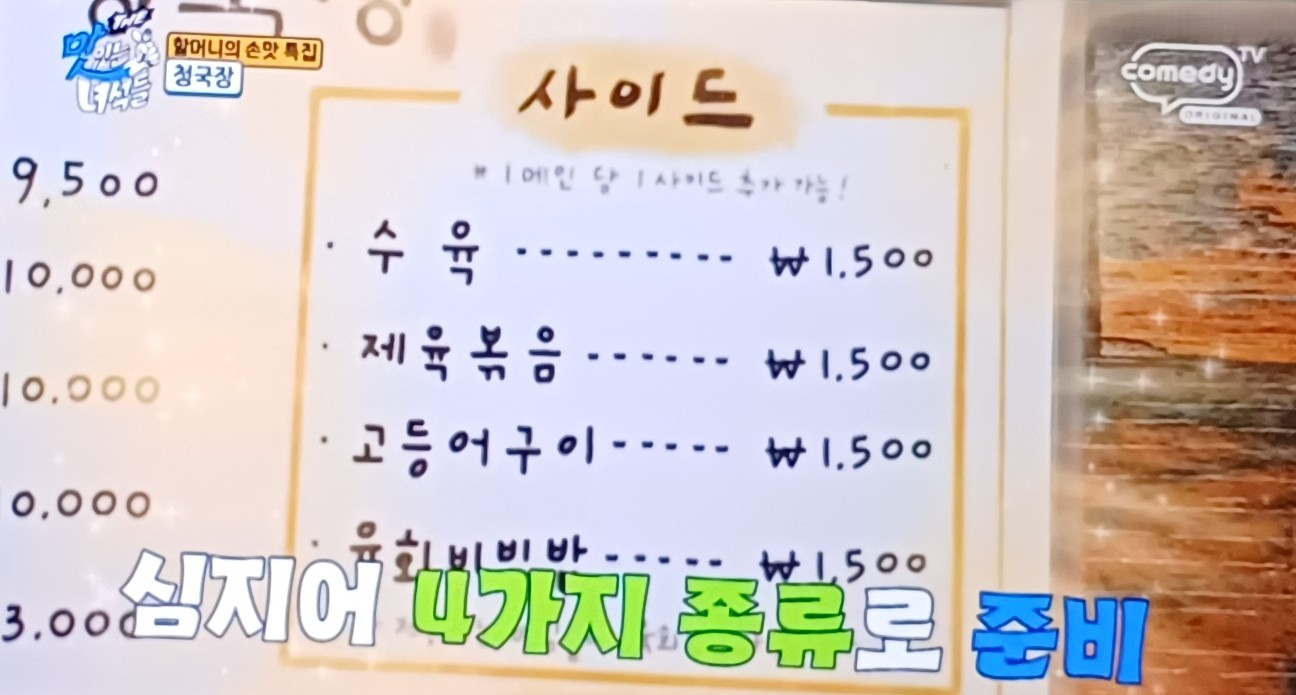 THE
맛있는
녀석들
할머니의 손맛 특집
청국장
comedy TV
ORIGINAL
9,500
10,000
10,000
0,000
3,000
사이드
※ 1메인 당 1사이드 추가 가능!
· 수육 --------- ₩1,500
· 제육볶음 ------ ₩1,500
· 고등어구이 ----- ₩1,500
· 육회비빔밥 ----- ₩1,500
심지어 4가지 종류로 준비